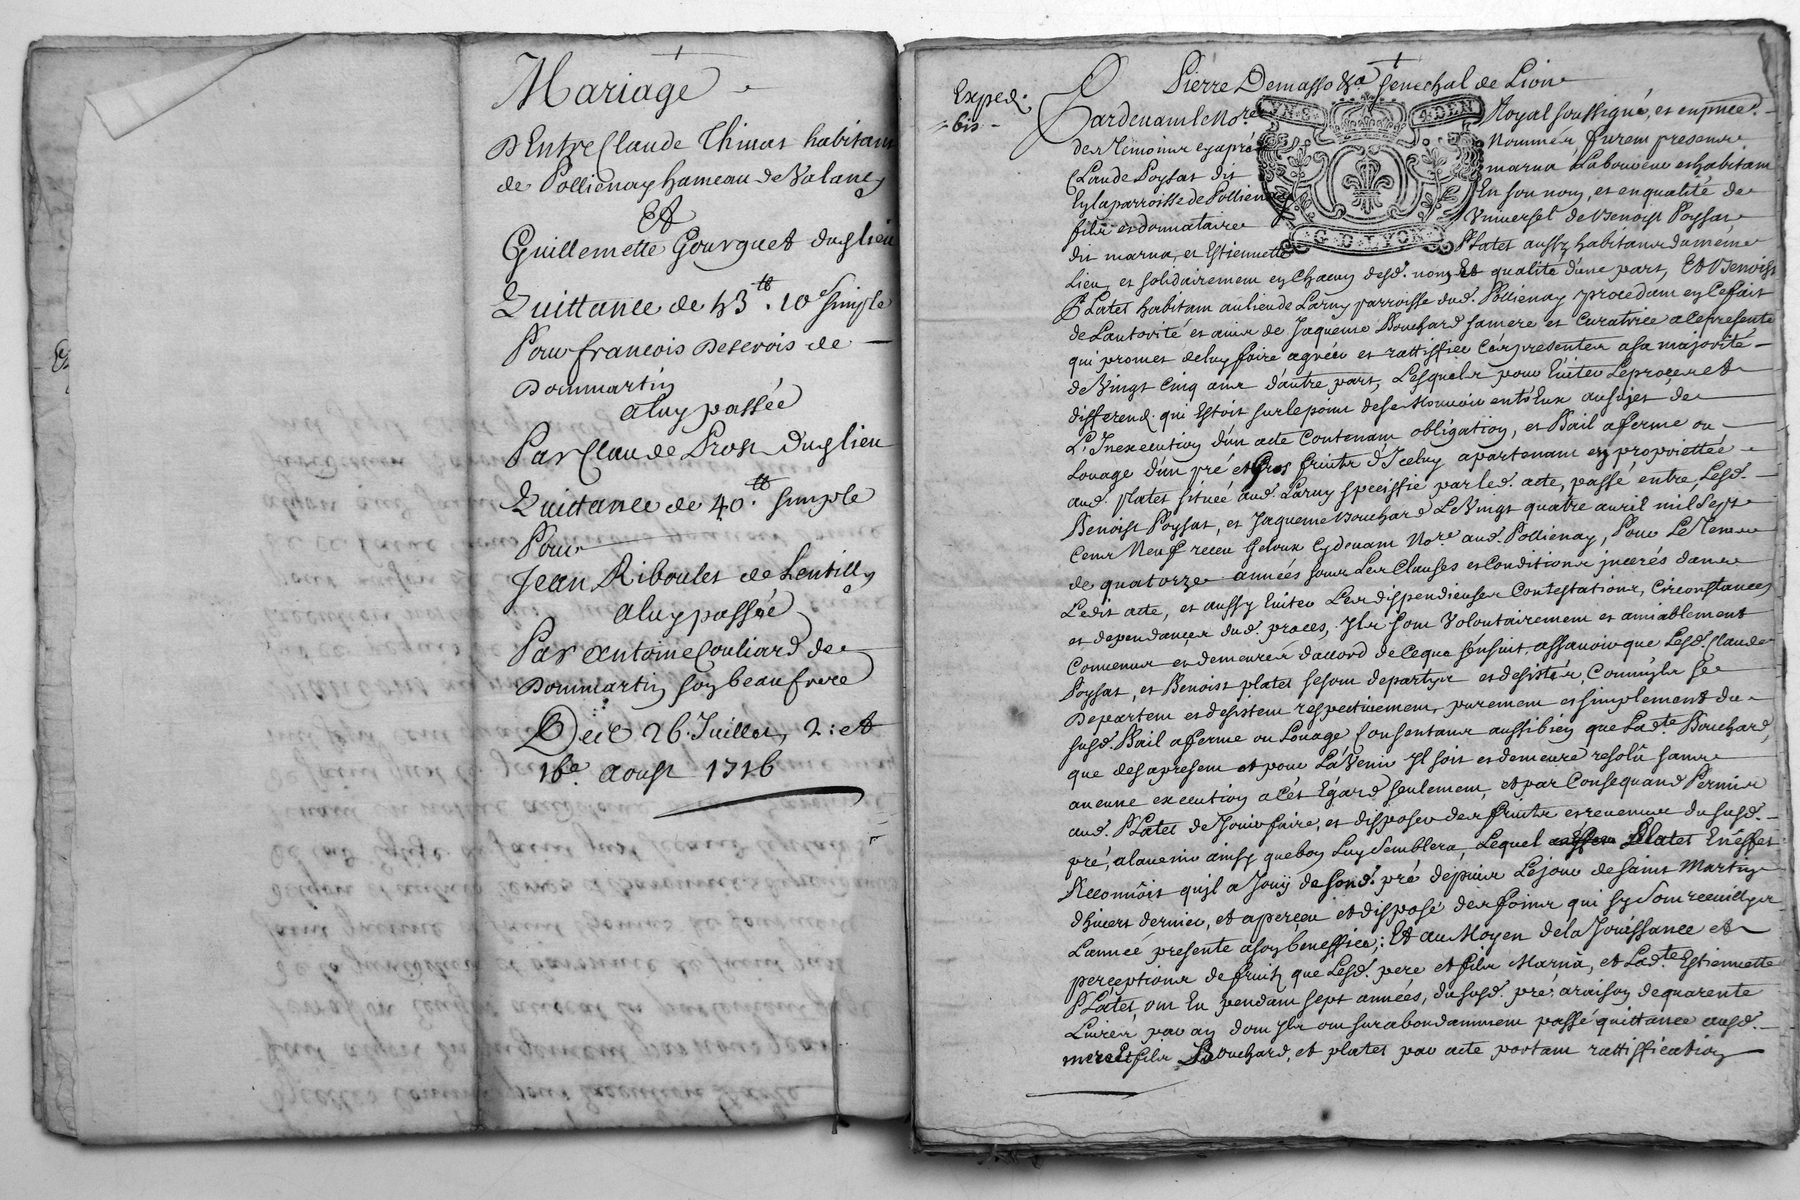 Mariage
D'Entre Claude Thinat habitant
de Pollienay hameau de Valancy
Et
Guillemette Gourguet dud lieu
Quittance de 43tt. 10s simple
Pour francois Deservois de
Dommartin
a luy passée
Par Claude Prost dud lieu
Quittance de 40tt. simple
Pour
Jean Riboulet de Lentilly
a luy passée
Par Antoine Couliard de
Dommartin soy beau frere
Des 26. Juillet, 2: et
16e aoust 1716
Exped.
bis
Pierre Demasso &a Senechal de Lion
Pardevant le No.re Royal soussigné, et en pnce.
des Temoins cy aprés Nommés furent presents
Claude Poysat dit marna Laboureur et habitant
En la parroisse de Pollienay En son nom, et en qualité de
fils et donnataire Vniversel de Benoist Poysat
dit marna, et Estiennette Platet aussy habitants du méme
Lieu, et solidairement en Chacun desd. noms Et qualité d'une part, Et Benoist
Platet habitant au lieu de Larny parroisse dud. Pollienay procedant en Ce fait
de L'autorité et avis de Jaqueme Bouchard sa mere et Curatrice a Ce presente
qui promet de luy faire agréer et rattiffier Ces presentes a sa majorité
de Vingt Cinq ans d'autre part, Lesquels pour Eviter Le procez et
differend. qui Estoit sur le point de se Mouvoir entr'Eux au sujet de
L'Inexecution d'un acte Contenant obligation, et Bail a ferme ou
Louage d'un pré et Gros fruits d'Iceluy apartenant en proprietté
aud. platet située aud. Larny speciffié par led. acte, passé entre, Lesd.
Benoist Poysat, et Jaqueme Bouchard Le Vingt quatre auril mil Sept
Cens Neuf receu Geloux Cy devant No.re aud. Pollienay, Pour Le Tems
de quatorze années sous Les Clauses et Conditions incerés dans
Ledit acte, et aussy Eviter Les dispendieuses Contestations, Circonstances
et dependances dud. proces, Ils sont Volontairement et amiablement
Convenus et demeurés d'accord de Ce que s'ensuit, assavoir que Lesd. Claude
Poysat, et Benoist platet se sont departys et desistés, Comm'ils se
Departent et desistent respectivement, purement et simplement du
susd. Bail a ferme ou Louage Consentant aussi bien que Lad.te Bouchard,
que des a present et pour L'avenir Il soit et demeure resolû sans
aucune execution a cét Egard seulement, et par Consequand Permis
aud. Platet de Jouir faire, et disposer des fruits et revenus du susd.
pré, a l'avenir ainsy que bon Luy Semblera, Lequel Platet En effet
Reconnoit qu'il a Jouÿ de sond. pré depuis Le jour de saint Martin
d'hivert dernier, et a perceu et disposé des foins qui s'y sont receuillys
L'année presente a son beneffice; Et au Moyen de la Jouissance et
perceptions de fruits que Lesd. pere et fils Marna, et Lad.te Estiennette
Platet, ont Eu pendant sept années, du susd. pré, a raison de quarente
Livres par an dont Ils ont surabondamment passé quittance ausd.
mere Et fils Bouchard, et platet par acte portant rattiffication
G.D.LYON